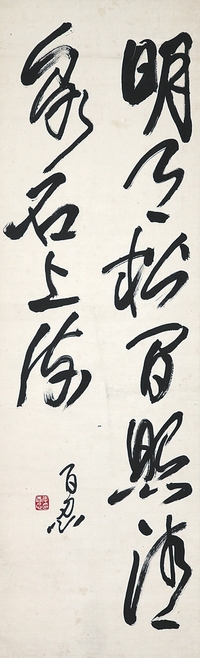 明月松間照清
泉石上流
百忍